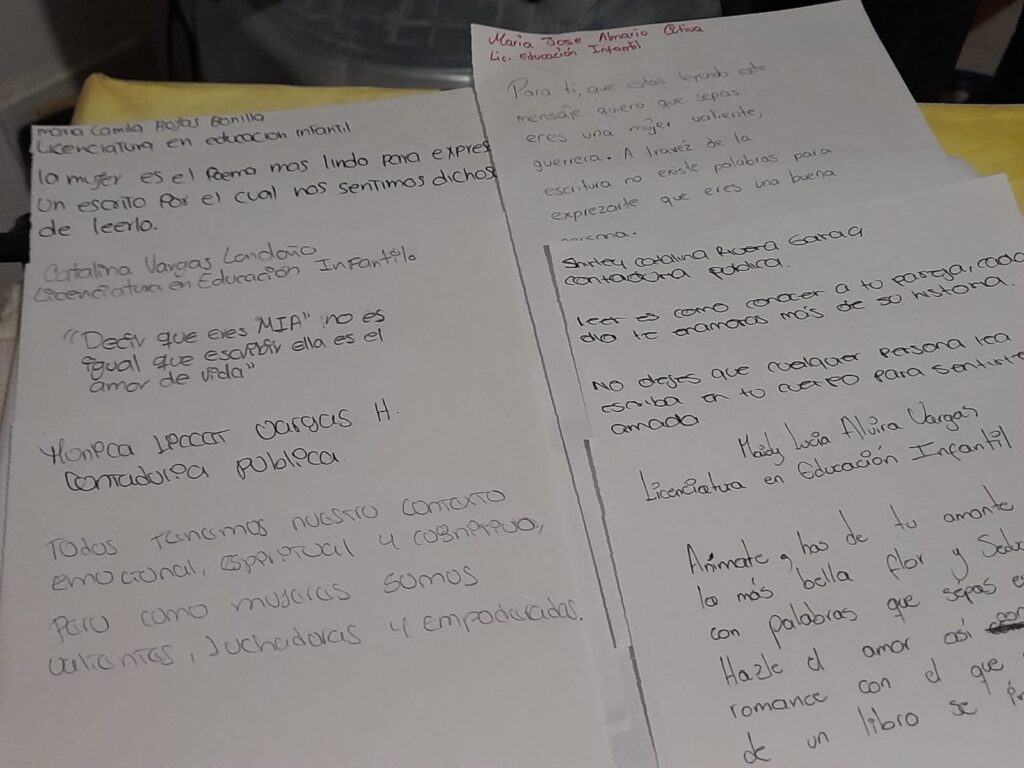 Maria Camila Rojas Bonilla
Licenciatura en educacion infantil
la mujer es el Poema mas lindo para expres
Un escrito Por el cual nos sentimos dichos
de leerlo.
Catalina Vargas Londoño
Licenciatura en Educación Infantil.
"Decir que eres "MIA" no es
igual que escribir ella es el
amor de vida"
Vargas H.
Contaduria publica.
Todos tenemos nuestro contexto
emocional, espiritual y cognitivo,
Pero como mujeres somos
valientes, luchadoras y empoderadas.
Maria Jose Almario
Lic. educación Infantil
Para ti, que estas leyendo este
mensaje quiero que sepas
eres una mujer valiente,
guerrera. A travez de la
escritura no existe palabras para
exprezarte que eres una buena
Shirley Catalina Rivera Garay
contaduria Publica.
leer es como conocer a tu pareja, cada
dia te enamoras más de su historia.
NO dejes que cualquier persona lea
escriba en tu cuerpo para sentirte
amada
Lucia Alvira Vargas
Licenciatura en Educación Infantil
Animate y haz de tu amante
la más bella flor y
con palabras que sepas
Hazle el amor así
romance con el que
de un libro se